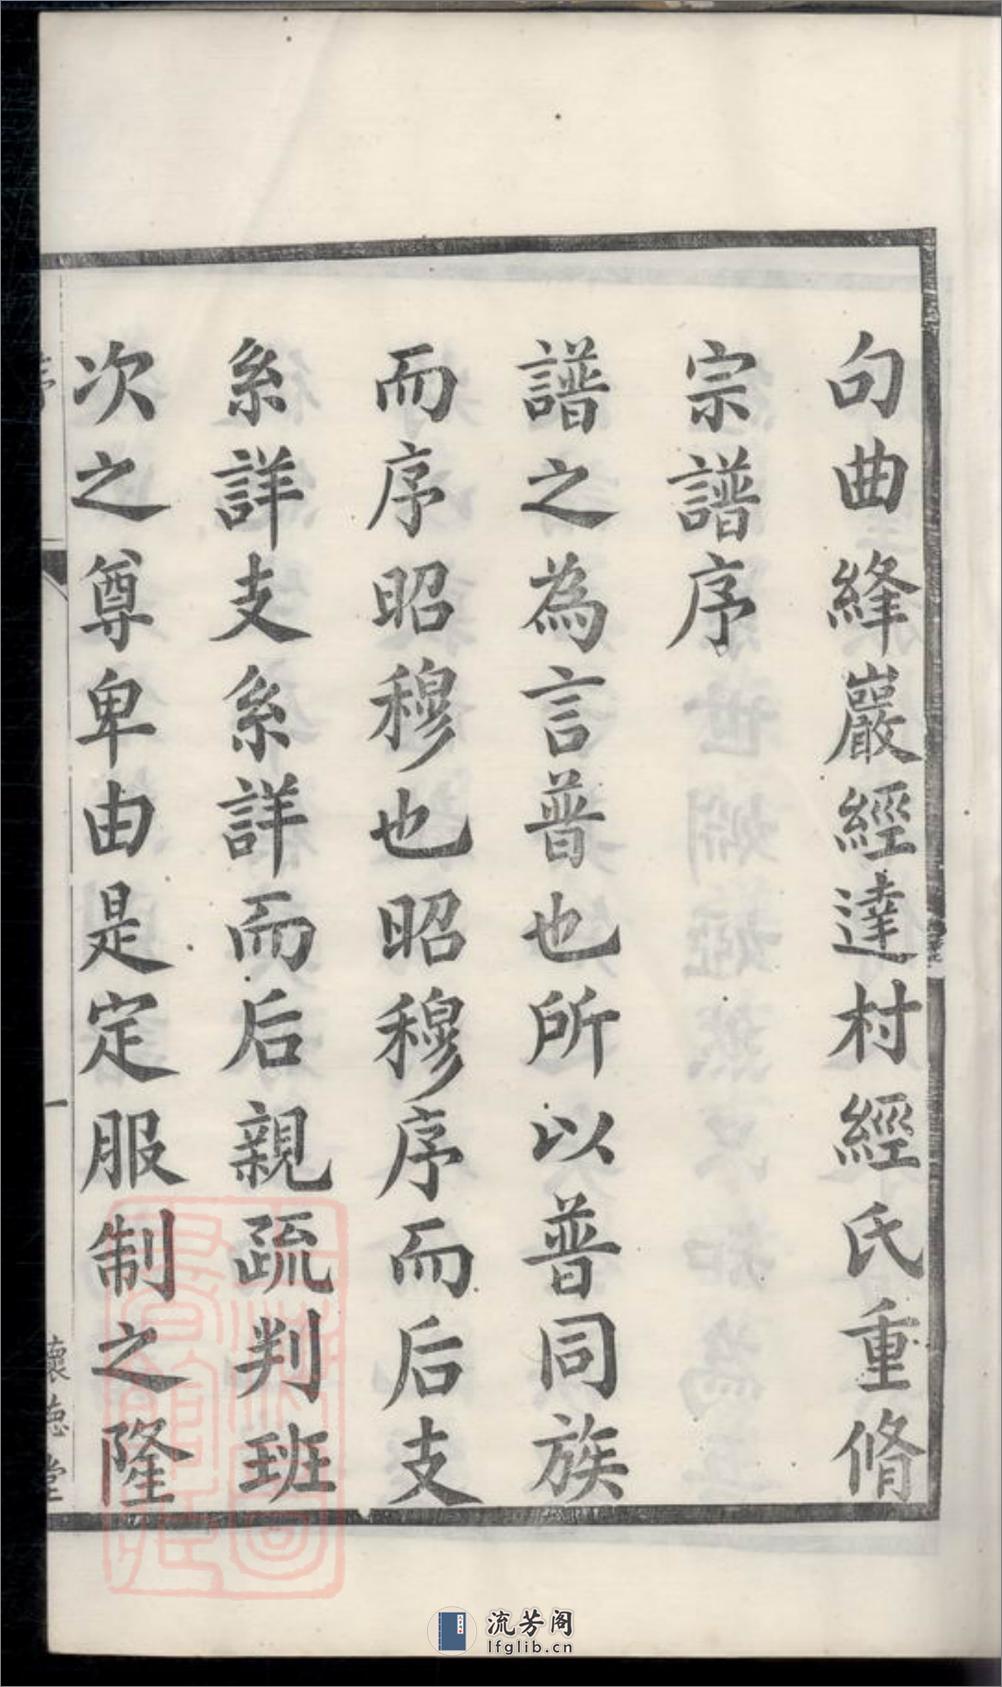 句曲絳巖經達村經氏重脩
宗譜序
譜之為言普也所以普同族
而序昭穆也昭穆序而后支
系詳支系詳而后親疏判班
次之尊卑由是定服制之隆
序
一
懷德堂
流芳阁
lfglib.cn